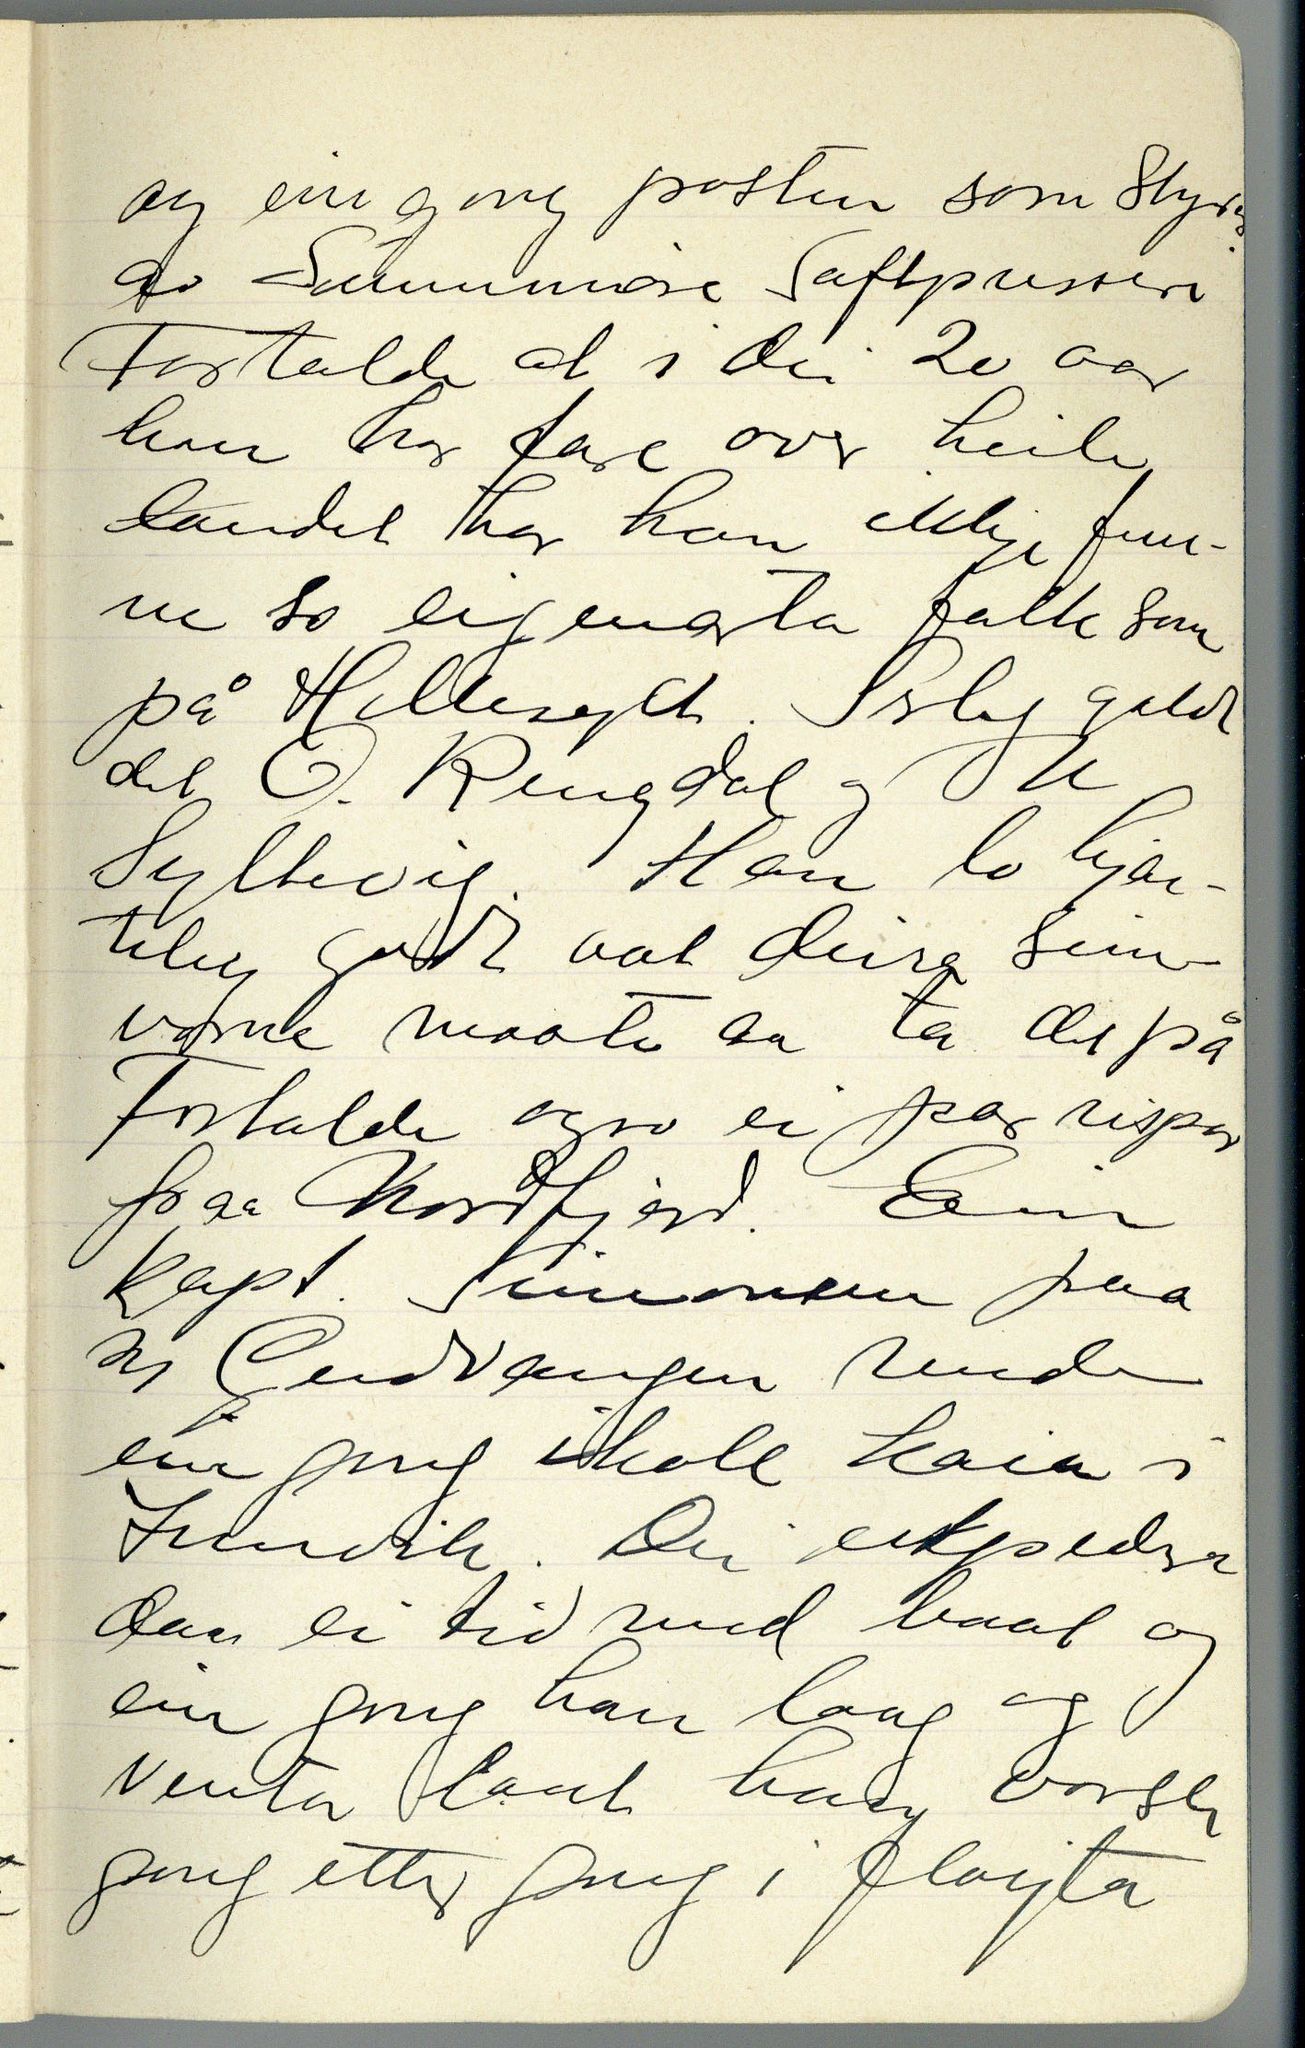 og ein gong posten som Styrar
av Sunnmøre Saftpresseri
Fortalde at i dei 20 aar
han har fare over heile
landet har han ikkje fun-
ne so eigenarta folk som
på Hellesylt. Serleg galdt
det O. Ringdal og
Syltevig. Han lo hjar-
teleg godt aat deira sin-
varne maate aa ta det på
Fortalde ogso ei par rispor
fraa Nordfjord. Ein
kapt. Simonsen paa
Gudvangen rende
ein gong ihole kaia i
Innvik. Dei ekspedera
daa ei tid med baat og
ein gong han laag og
venta laat han
gong etter gong i fløyta